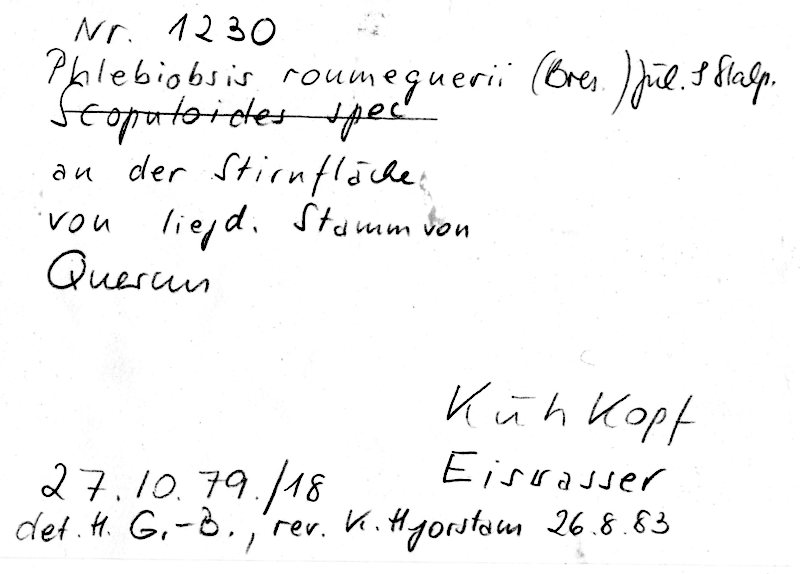 Nr. 1230
Phlebiobsis roumeguerii (Bres.) Jül. & Stalp.
Scopuloides spec
an der Stirnfläche
von liegd. Stamm von
Quercus
Kühkopf
Eiswasser
27.10.79./18
det. H. G.-B., rev. K. Hjorstam 26.8.83